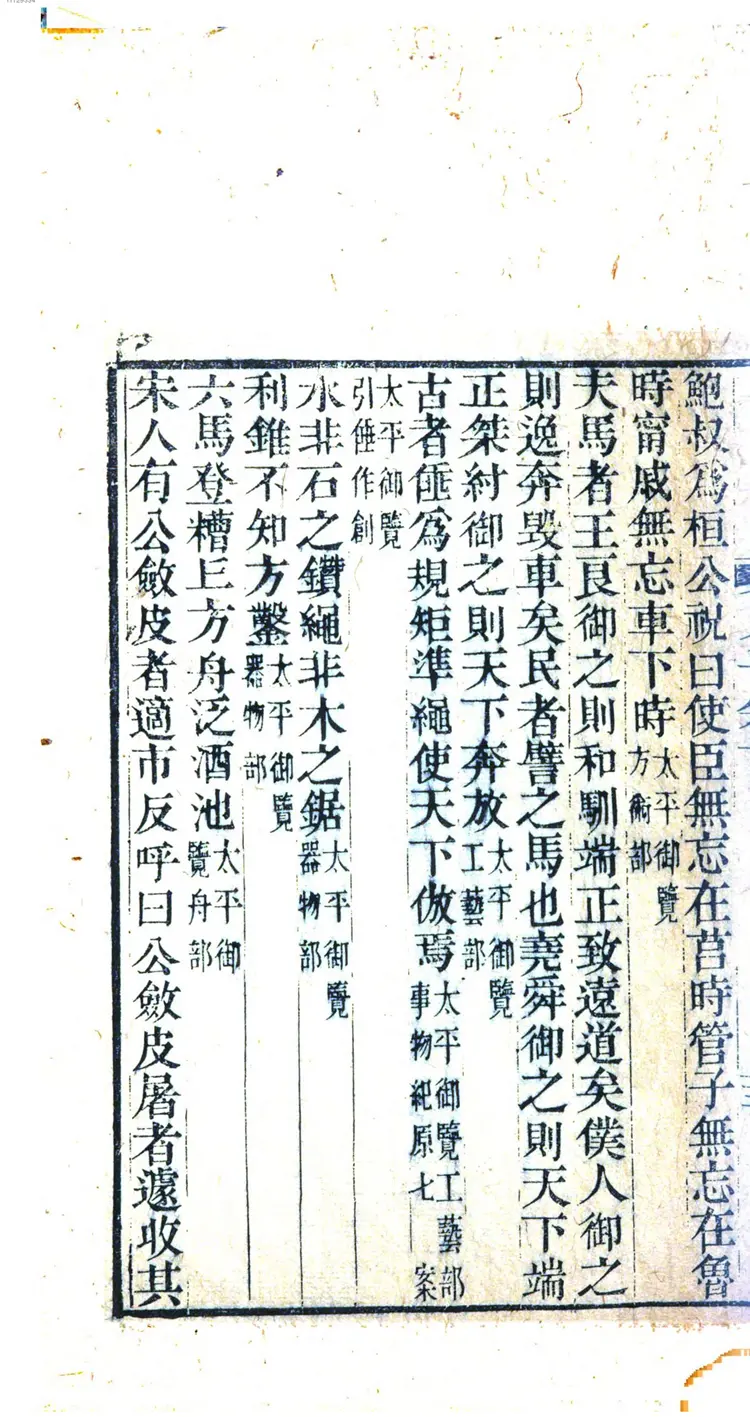 鮑叔爲桓公祝曰使臣無忘在莒時管子無忘在魯
時甯戚無忘車下時太平御覽方術部
夫馬者王良御之則和馴端正致遠道矣僕人御之
則逸奔毀車矣民者譬之馬也堯舜御之則天下端
正桀紂御之則天下奔放太平御覽工藝部
古者倕爲規矩準繩使天下倣焉太平御覽工藝部事物紀原七 案
太平御覽引倕作創
水非石之鑽繩非木之鋸太平御覽器物部
利錐不知方鑿太平御覽器物部
六馬登糟丘方舟泛酒池太平御覽舟部
宋人有公斂皮者適市反呼曰公斂皮屠者遽收其